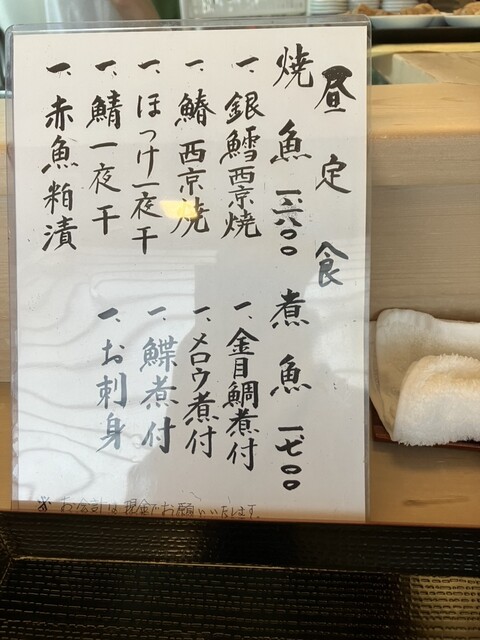 昼定食
焼魚 一六〇〇
一、銀鱈西京焼
一、鰆西京焼
一、ほっけ一夜干
一、鯖一夜干
一、赤魚粕漬
煮魚 一七〇〇
一、金目鯛煮付
一、メロウ煮付
一、鰈煮付
一、お刺身
※お会計は現金でお願いいたします。